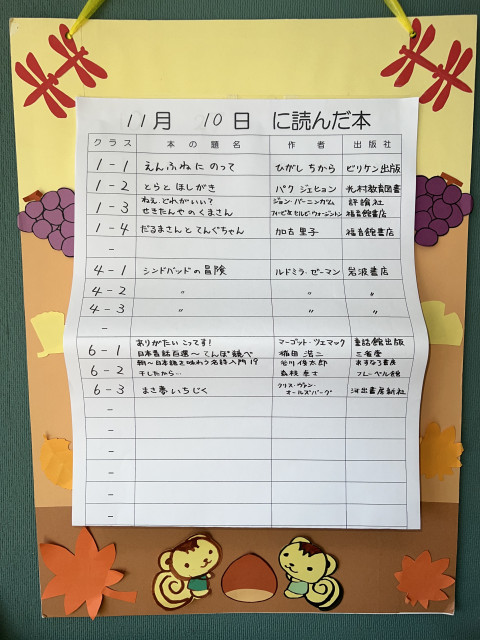 11月 10日 に読んだ本
クラス 本の題名 作者 出版社
1-1 えんふねに のって ひがし ちから ビリケン出版
1-2 とらと ほしがき パク ジェヒョン 光村教育図書
1-3 ねえ、どれがいい? ジョン・バーニンガム 評論社
せきたんやのくまさん フィービとセルビ・ウォージントン 福音館書店
1-4 だるまさんと てんぐちゃん 加古 里子 福音館書店
-
4-1 シンドバッドの冒険 ルドミラ・ゼーマン 岩波書店
4-2 〃 〃 〃
4-3 〃 〃 〃
-
6-1 ありがたい こってす! マーゴット・ツェマック 童話館出版
日本昔話百選〜てんぽ競べ 稲田 浩二 三省堂
6-2 朝〜日本語を味わう名詩入門19 谷川俊太郎 あすなろ書房
干したから… 森枝 卓士 フレーベル館
6-3 まさ夢いちじく クリス・ヴァン・オールズバーグ 河出書房新社
-
-
-
-
-
-